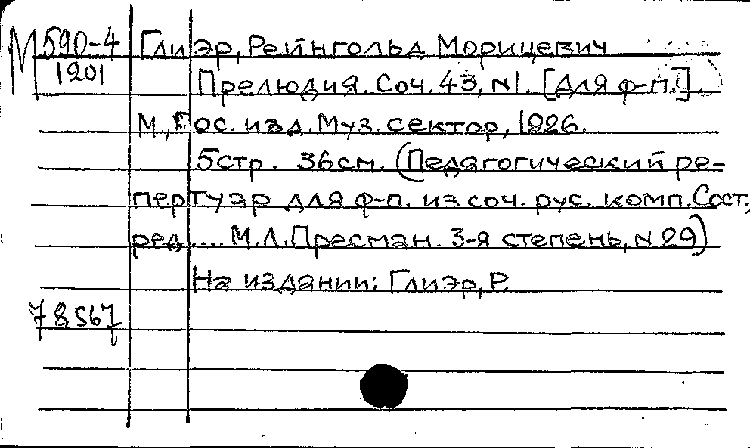 М 590-4 Глиэр, Рейнгольд Морицевич
1201 Прелюдия. Соч. 43, N1. [Для ф-п.].
М., Гос. изд. Муз. сектор, 1926.
5стр. 36см. (Педагогический ре-
пертуар для ф-п. из соч. рус. комп. Сост.,
ред.... М.Л. Пресман. 3-я степень, N 29)
На издании: Глиэр, Р.
78567